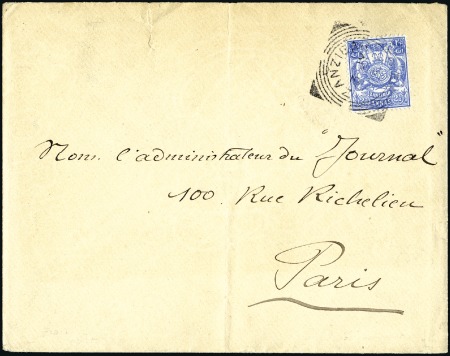 ZANZIB
Mons. l'administrateur du "Journal"
100. Rue Richelieu
Paris